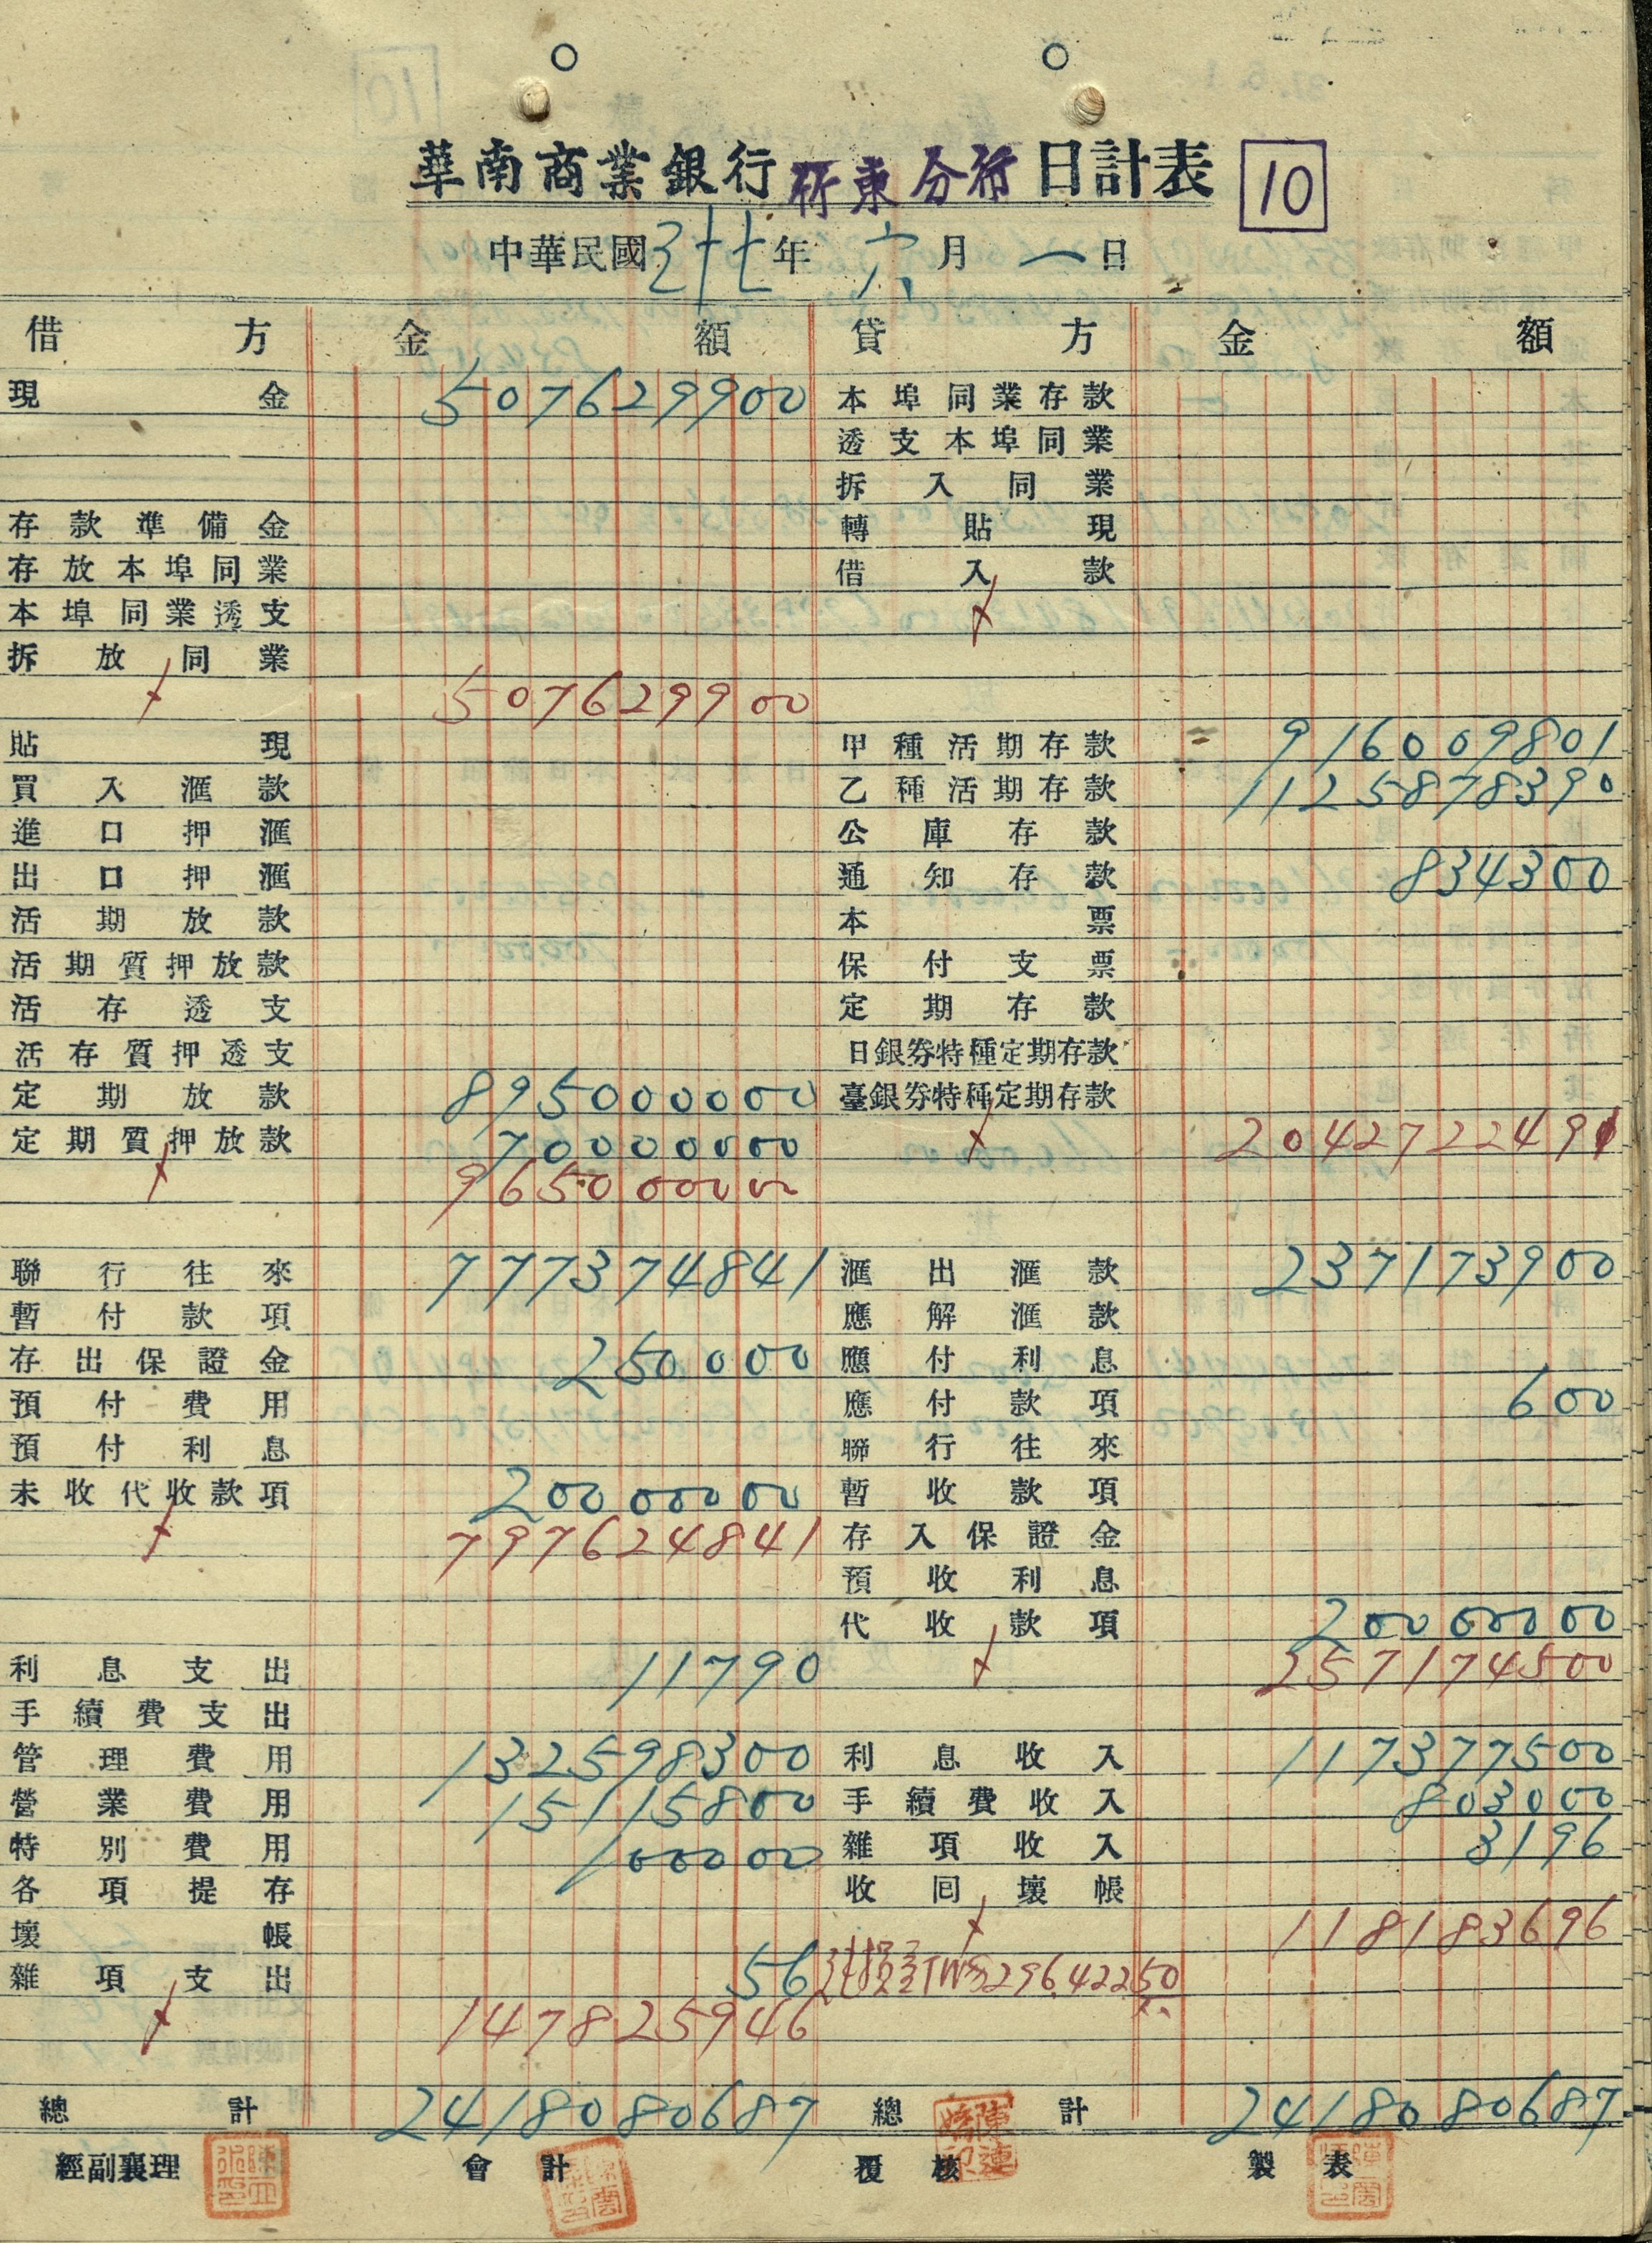 華南商業銀行 東分行 日計表 10
中華民國三十七年 六月 一日
借方 金額 貸方 金額
現金 507629900 本埠同業存款
透支本埠同業
拆入同業
存款準備金 轉貼現
存放本埠同業 借入款
本埠同業透支
拆放同業
507629900
貼現 甲種活期存款 916009801
買入滙款 乙種活期存款 1125878390
進口押滙 公庫存款
出口押滙 通知存款 834300
活期放款 本票
活期質押放款 保付支票
活存透支 定期存款
活存質押透支 日銀券特種定期存款
定期放款 895000000 臺銀券特種定期存款
定期質押放款 70000000 2042722491
965000000
聯行往來 777374841 滙出滙款 237173900
暫付款項 應解滙款
存出保證金 250000 應付利息
預付費用 應付款項 600
預付利息 聯行往來
未收代收款項 20000000 暫收款項
797624841 存入保證金
預收利息
代收款項 20000000
利息支出 11790 257174500
手續費支出
管理費用 132598300 利息收入 117377500
營業費用 15115800 手續費收入 803000
特別費用 100000 雜項收入 3196
各項提存 收回壞帳
壞帳 118183696
雜項支出 56 純損金TW$296,42250
147825946
總計 2418080687 總計 2418080687
經副襄理 會計 覆核 製表